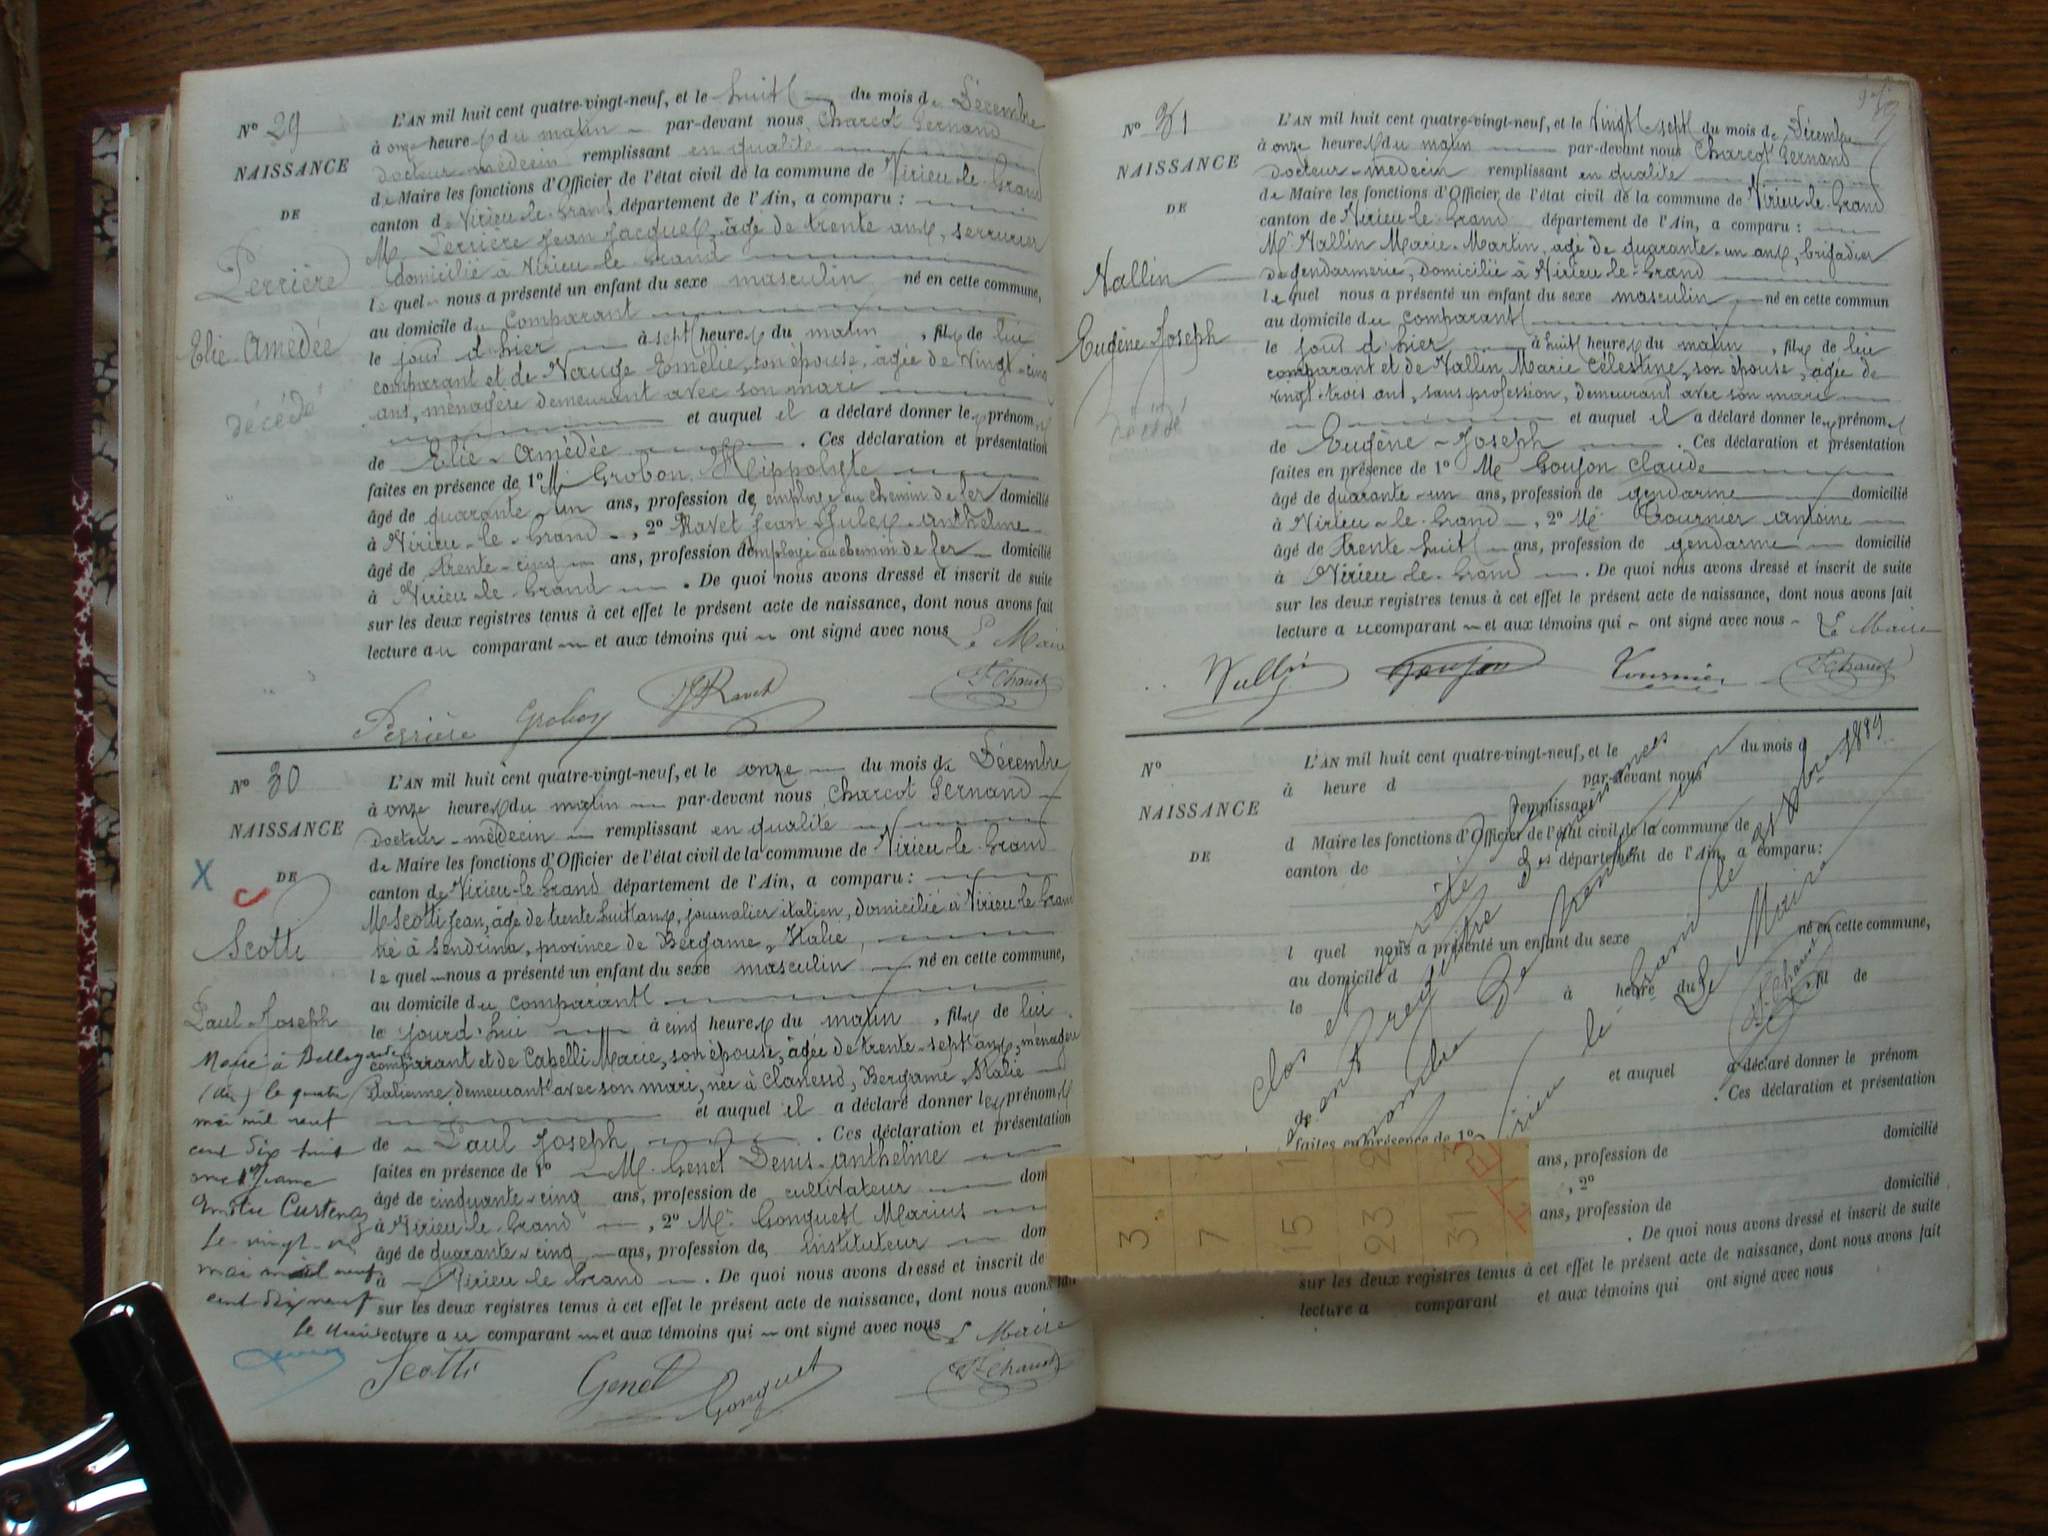 Nº 29
NAISSANCE
DE
Perrière
Elie Amédée
décédé
L'AN mil huit cent quatre-vingt-neuf, et le huit du mois de Décembre
à onze heures du matin par-devant nous Charcot Fernand
docteur-médecin remplissant en qualité
de Maire les fonctions d'Officier de l'état civil de la commune de Virieu-le-Grand
canton de Virieu-le-Grand département de l'Ain, a comparu :
M. Perrière Jean Jacques, âgé de trente ans, serrurier
domicilié à Virieu-le-Grand
lequel nous a présenté un enfant du sexe masculin né en cette commune,
au domicile du comparant
le jour d'hier à sept heures du matin, fils de lui
comparant et de Emélie, son épouse, âgée de vingt-cinq
ans, ménagère demeurant avec son mari
et auquel il a déclaré donner les prénoms
de Elie-Amédée. Ces déclaration et présentation
faites en présence de 1º M. Grobon Hippolyte
âgé de quarante-un ans, profession de employé au chemin de fer domicilié
à Virieu-le-Grand, 2º Ravet Jean Jules-Anthelme
âgé de trente-cinq ans, profession d'employé au chemin de fer domicilié
à Virieu-le-Grand. De quoi nous avons dressé et inscrit de suite
sur les deux registres tenus à cet effet le présent acte de naissance, dont nous avons fait
lecture au comparant et aux témoins qui ont signé avec nous Le Maire
Perrière Grobon J Ravet F. Charcot
Nº 30
NAISSANCE
DE
X
Scotti
Paul-Joseph
Marié à Bellegarde
(Ain) le quatre
mai mil neuf
cent dix huit
avec Jeanne
Le vingt
mai mil neuf
cent dix neuf
L'AN mil huit cent quatre-vingt-neuf, et le onze du mois de Décembre
à onze heures du matin par-devant nous Charcot Fernand
Docteur-médecin remplissant en qualité
de Maire les fonctions d'Officier de l'état civil de la commune de Virieu-le-Grand
canton de Virieu-le-Grand département de l'Ain, a comparu :
M. Scotti Jean, âgé de trente huit ans, journalier italien, domicilié à Virieu le Grand
né à Sendrina, province de Bergame, Italie,
lequel nous a présenté un enfant du sexe masculin né en cette commune,
au domicile du comparant
le jourd'hui à cinq heures du matin, fils de lui
comparant et de Capelli Marie, son épouse, âgée de trente-sept ans, ménagère
Italienne demeurant avec son mari, née à Clanesso, Bergame, Italie
et auquel il a déclaré donner les prénoms
de Paul Joseph. Ces déclaration et présentation
faites en présence de 1º M. Genet Denis-Anthelme
âgé de cinquante-cinq ans, profession de cultivateur dom
à Virieu-le-Grand, 2º Mr. Gonguet Marius
âgé de quarante-cinq ans, profession de instituteur dom
à Virieu le Grand. De quoi nous avons dressé et inscrit de
sur les deux registres tenus à cet effet le présent acte de naissance, dont nous avons fait
lecture au comparant et aux témoins qui ont signé avec nous Le Maire
Scotti Genet Gonguet F. Charcot
Nº 31
NAISSANCE
DE
Vallin
Eugène Joseph
décédé
L'AN mil huit cent quatre-vingt-neuf, et le vingt-sept du mois de Décembre
à onze heures du matin par-devant nous Charcot Fernand
Docteur-médecin remplissant en qualité
de Maire les fonctions d'Officier de l'état civil de la commune de Virieu-le-Grand
canton de Virieu-le-Grand département de l'Ain, a comparu :
Mr Vallin Marie-Martin, âgé de quarante-un ans, brigadier
de gendarmerie, domicilié à Virieu-le-Grand
lequel nous a présenté un enfant du sexe masculin né en cette commun
au domicile du comparant
le jour d'hier à huit heures du matin, fils de lui
comparant et de Vallin Marie Célestine, son épouse, âgée de
vingt-trois ans, sans profession, demeurant avec son mari
et auquel il a déclaré donner les prénoms
de Eugène-Joseph. Ces déclaration et présentation
faites en présence de 1º Mr Goujon Claude
âgé de quarante-un ans, profession de gendarme domicilié
à Virieu-le-Grand, 2º Mr Tournier Antoine
âgé de trente huit ans, profession de gendarme domicilié
à Virieu-le-Grand. De quoi nous avons dressé et inscrit de suite
sur les deux registres tenus à cet effet le présent acte de naissance, dont nous avons fait
lecture au comparant et aux témoins qui ont signé avec nous Le Maire
Vallin Goujon Tournier F. Charcot
Nº
NAISSANCE
DE
L'AN mil huit cent quatre-vingt-neuf, et le du mois d
à heure d par-devant nous
remplissant
d Maire les fonctions d'Officier de l'état civil de la commune de
canton de département de l'Ain, a comparu :
l quel nous a présenté un enfant du sexe né en cette commune,
au domicile d
le à heure du , fil de
et auquel a déclaré donner le prénom
de . Ces déclaration et présentation
faites en présence de 1º
domicilié
ans, profession de
, 2º
domicilié
ans, profession de
. De quoi nous avons dressé et inscrit de suite
sur les deux registres tenus à cet effet le présent acte de naissance, dont nous avons fait
lecture a comparant et aux témoins qui ont signé avec nous
Clos et arrêté
le Grand le 31 Xbre 1889
Le Maire
F. Charcot
3 7 15 23 31